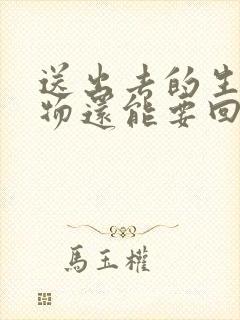 送出去的生
物還能要回
馬玉權